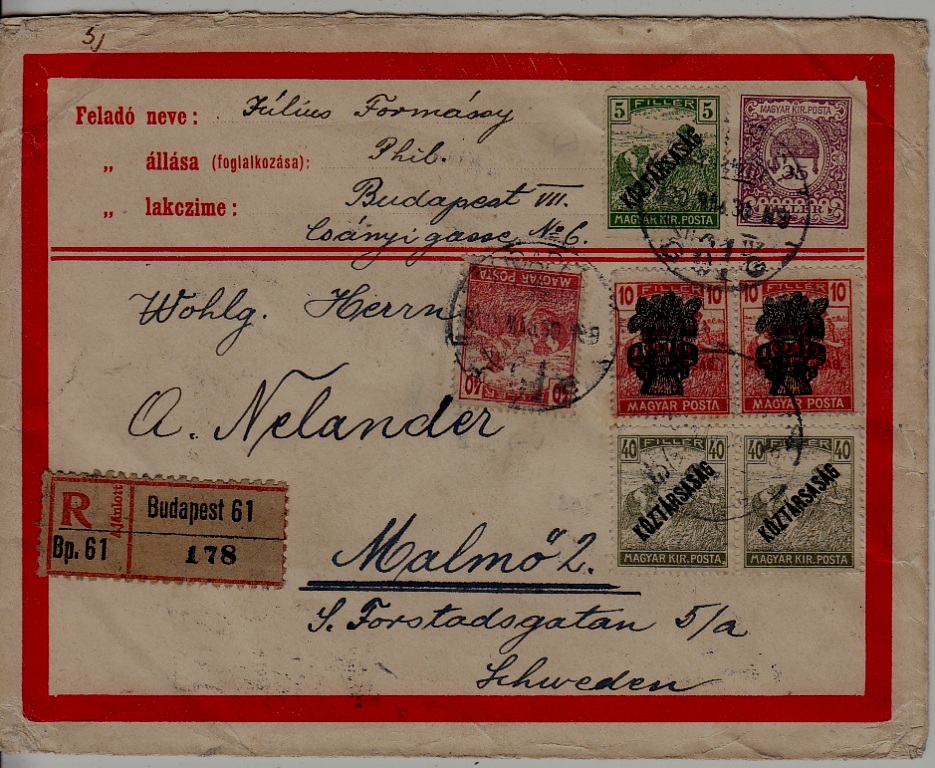 5/
Feladó neve: Július Formássy
„ állása (foglalkozása): Phil.
„ lakczime: Budapest VII.
Csányigasse No 6.
5 FILLÉR 5
KÖZTÁRSASÁG
MAGYAR KIR. POSTA
MAGYAR KIR. POSTA
35
FILLÉR
Wohlg. Herrn
A. Nelander
Malmő 2.
S. Forstadsgatan 5/a
Schweden
40
MAGYAR POSTA
10 FILLÉR 10
MAGYAR POSTA
10 FILLÉR 10
MAGYAR POSTA
40 FILLÉR 40
KÖZTÁRSASÁG
MAGYAR KIR. POSTA
40 FILLÉR 40
KÖZTÁRSASÁG
MAGYAR KIR. POSTA
R
Ajánlott
Bp. 61
Budapest 61
178